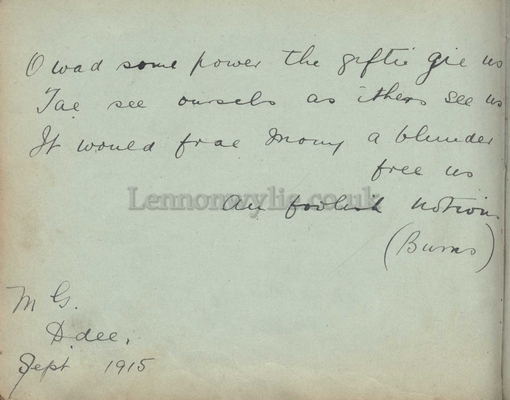 O wad some power the giftie gie us
Tae see oursels as ithers see us
It would frae mony a blunder
free us
Lennonwylie.co.uk
An foolish notion
(Burns)
M G.
D.dee,
Sept 1915